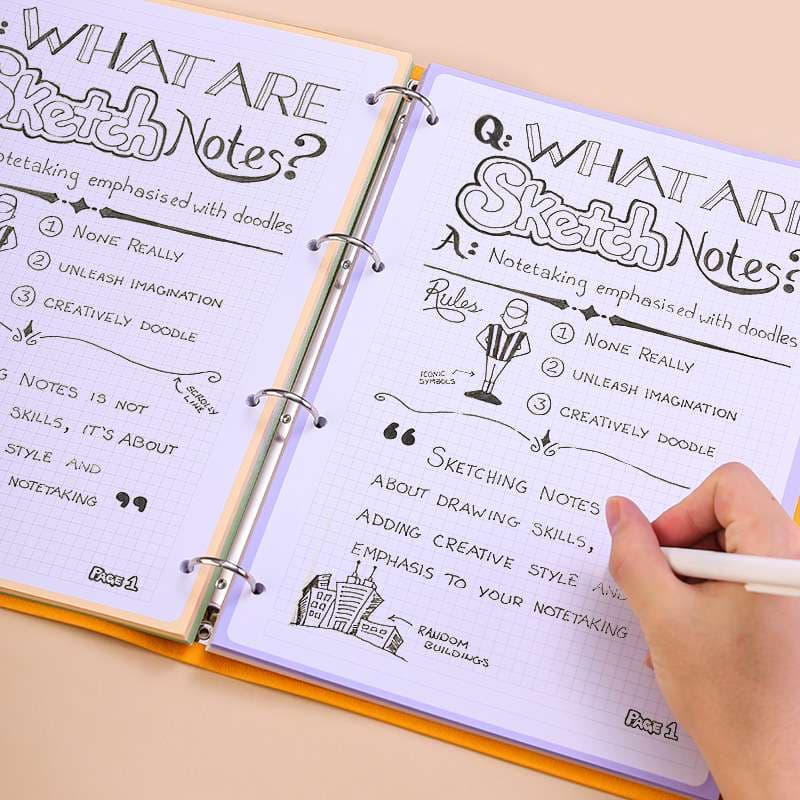 : WHAT ARE
Sketch Notes?
otetaking emphasised with doodles
1 NONE REALLY
2 UNLEASH IMAGINATION
3 CREATIVELY DOODLE
SCROLLY
LINE
G NOTES IS NOT
SKILLS, IT'S ABOUT
STYLE AND
NOTETAKING ”
PAGE 1
Q: WHAT ARE
Sketch Notes?
A: Notetaking emphasised with doodles
Rules
1 NONE REALLY
2 UNLEASH IMAGINATION
3 CREATIVELY DOODLE
ICONIC
SYMBOLS
“ SKETCHING NOTES
ABOUT DRAWING SKILLS,
ADDING CREATIVE STYLE AND
EMPHASIS TO YOUR NOTETAKING
RANDOM
BUILDINGS
PAGE 1